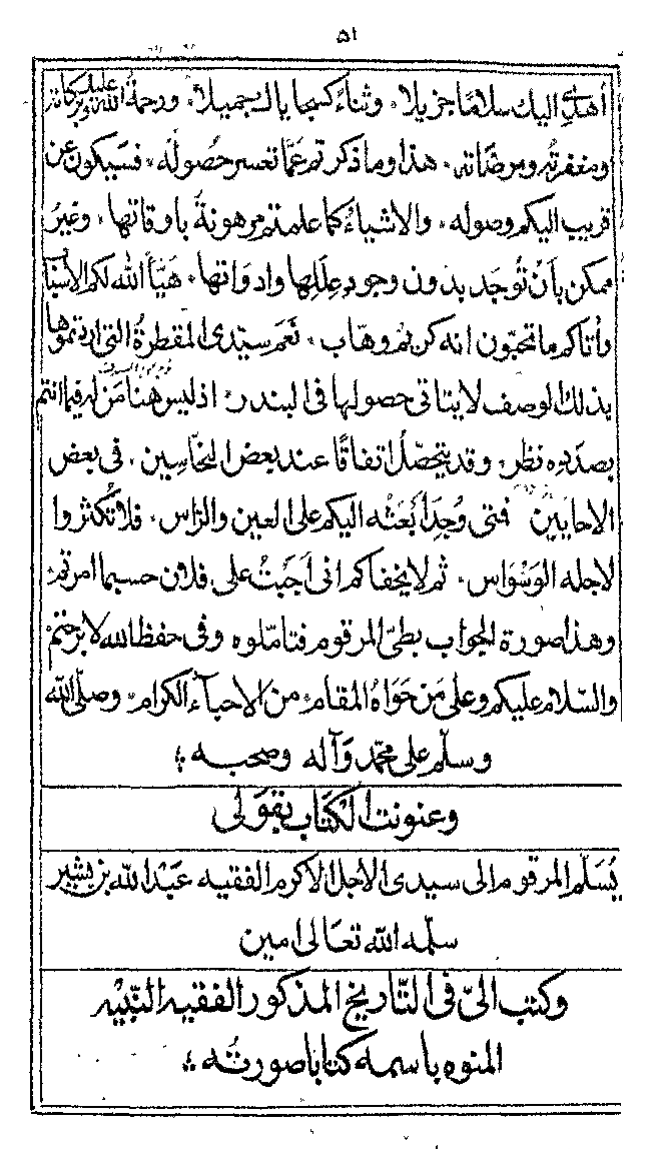 ٥١
أهدي اليك سلاما جزيلا، وثناء كسجاياك جميلا، ورحمة الله عليك وبركاته
ومغفرته ومرضاته، هذا وما ذكرتم عما تعسر حصوله، فسيكون عن
قريب اليكم وصوله، والاشياء كما علمتم مرهونة باوقاتها، وغير
ممكن بأن توجد بدون وجود عللها وادواتها، هيأ الله لكم الاسباب
وأتاكم ما تحبون انه كريم وهاب، نعم سيدى المقطرة التى اردتموها
بذلك الوصف لا يتاتى حصولها فى البندر، اذ ليس هنا من له فيما انتم
بصدده نظر، وقد يتحصل اتفاقا عند بعض النحاسين، فى بعض
الاحايين فمتى وجد أبعثه اليكم على العين والراس، فلا تكثروا
لاجله الوسواس، ثم لا يخفاكم انى أجبت على فلان حسبما امرتم
وهذا صورة الجواب بطى المرقوم فتاملوه وفى حفظ الله لا برحتم
والسلام عليكم وعلى من حواه المقام، من الاحباء الكرام، وصلى الله
وسلم على محمد وآله وصحبه ؛
وعنونت الكتاب بقولى
يسلم المرقوم الى سيدى الاجل الاكرم الفقيه عبد الله بن بشير
سلمه الله تعالى امين
وكتب الى فى التاريخ المذكور الفقيه النبيه
المنوه باسمه كتابا صورته ؛